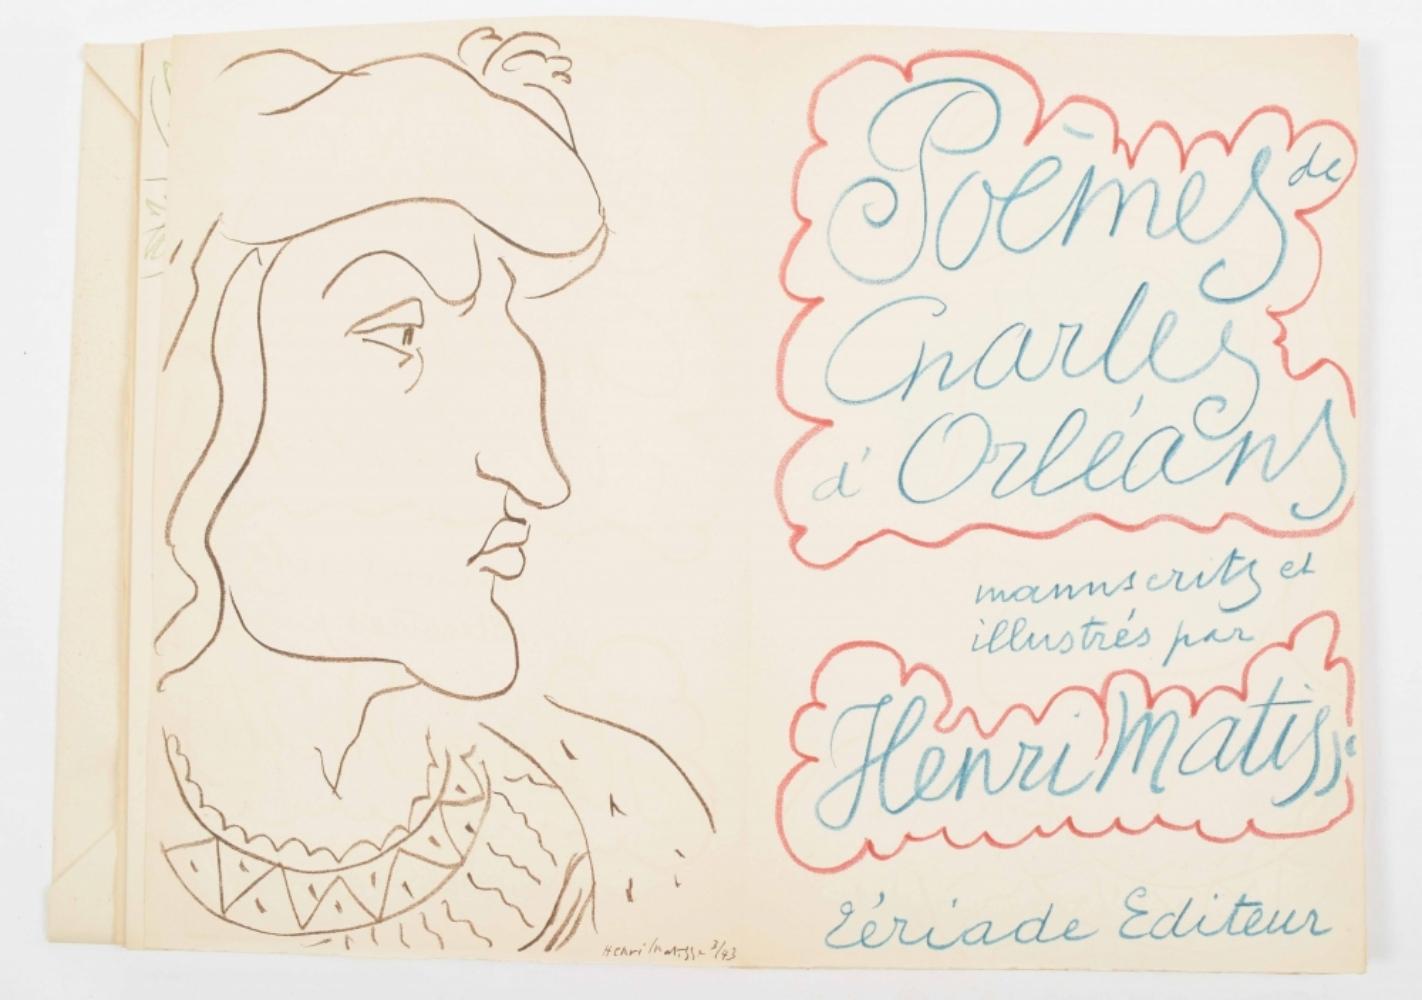 Poèmes de
Charles
d'Orléans
manuscrits et
illustrés par
Henri Matisse
Tériade Editeur
Henri Matisse 3/43